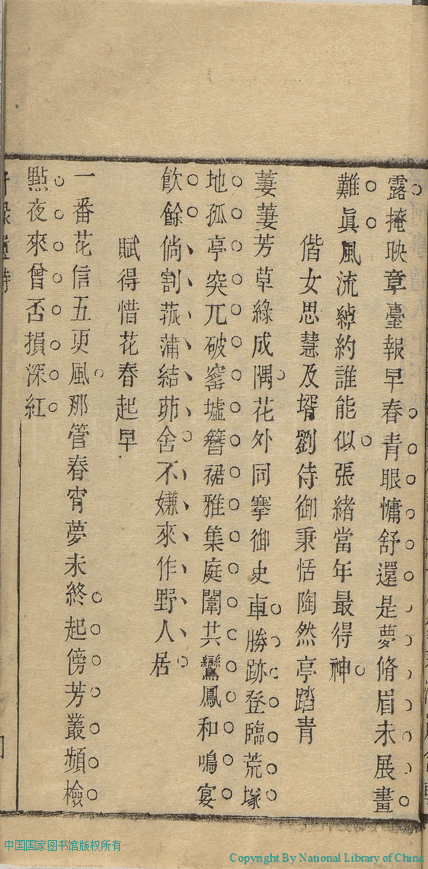 露掩映章臺報早春青眼慵舒還是夢脩眉未展畫
難眞風流綽約誰能似張緒當年最得神
偕女思慧及壻劉侍御秉恬陶然亭踏青
萋萋芳草綠成隅花外同搴御史車勝跡登臨荒塚
地孤亭突兀破窰墟簪裾雅集庭闈共鸞鳳和鳴宴
飲餘倘割菰蒲結茆舍不嫌來作野人居
賦得惜花春起早
一番花信五更風那管春宵夢未終起傍芳叢頻檢
點夜來曾否損深紅
中国国家图书馆版权所有
Copyright By National Library of China